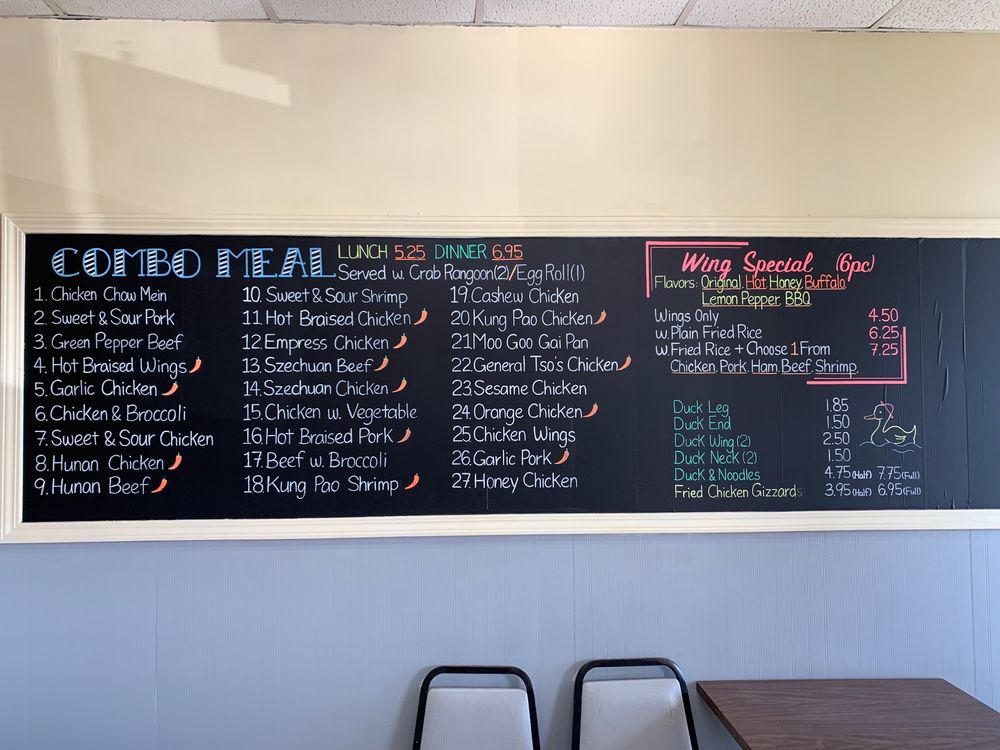 COMBO MEAL
LUNCH 5.25 DINNER 6.95
Served w. Crab Rangoon(2)/Egg Roll(1)
1. Chicken Chow Mein
2. Sweet & Sour Pork
3. Green Pepper Beef
4. Hot Braised Wings
5. Garlic Chicken
6. Chicken & Broccoli
7. Sweet & Sour Chicken
8. Hunan Chicken
9. Hunan Beef
10. Sweet & Sour Shrimp
11. Hot Braised Chicken
12. Empress Chicken
13. Szechuan Beef
14. Szechuan Chicken
15. Chicken w. Vegetable
16. Hot Braised Pork
17. Beef w. Broccoli
18. Kung Pao Shrimp
19. Cashew Chicken
20. Kung Pao Chicken
21. Moo Goo Gai Pan
22. General Tso's Chicken
23. Sesame Chicken
24. Orange Chicken
25. Chicken Wings
26. Garlic Pork
27. Honey Chicken
Wing Special (6pc)
Flavors: Original, Hot, Honey, Buffalo,
Lemon Pepper, BBQ
Wings Only 4.50
w. Plain Fried Rice 6.25
w. Fried Rice + Choose 1 From 7.25
Chicken, Pork, Ham, Beef, Shrimp.
Duck Leg 1.85
Duck End 1.50
Duck Wing (2) 2.50
Duck Neck (2) 1.50
Duck & Noodles 4.75 (Half) 7.75 (Full)
Fried Chicken Gizzards 3.95 (Half) 6.95 (Full)